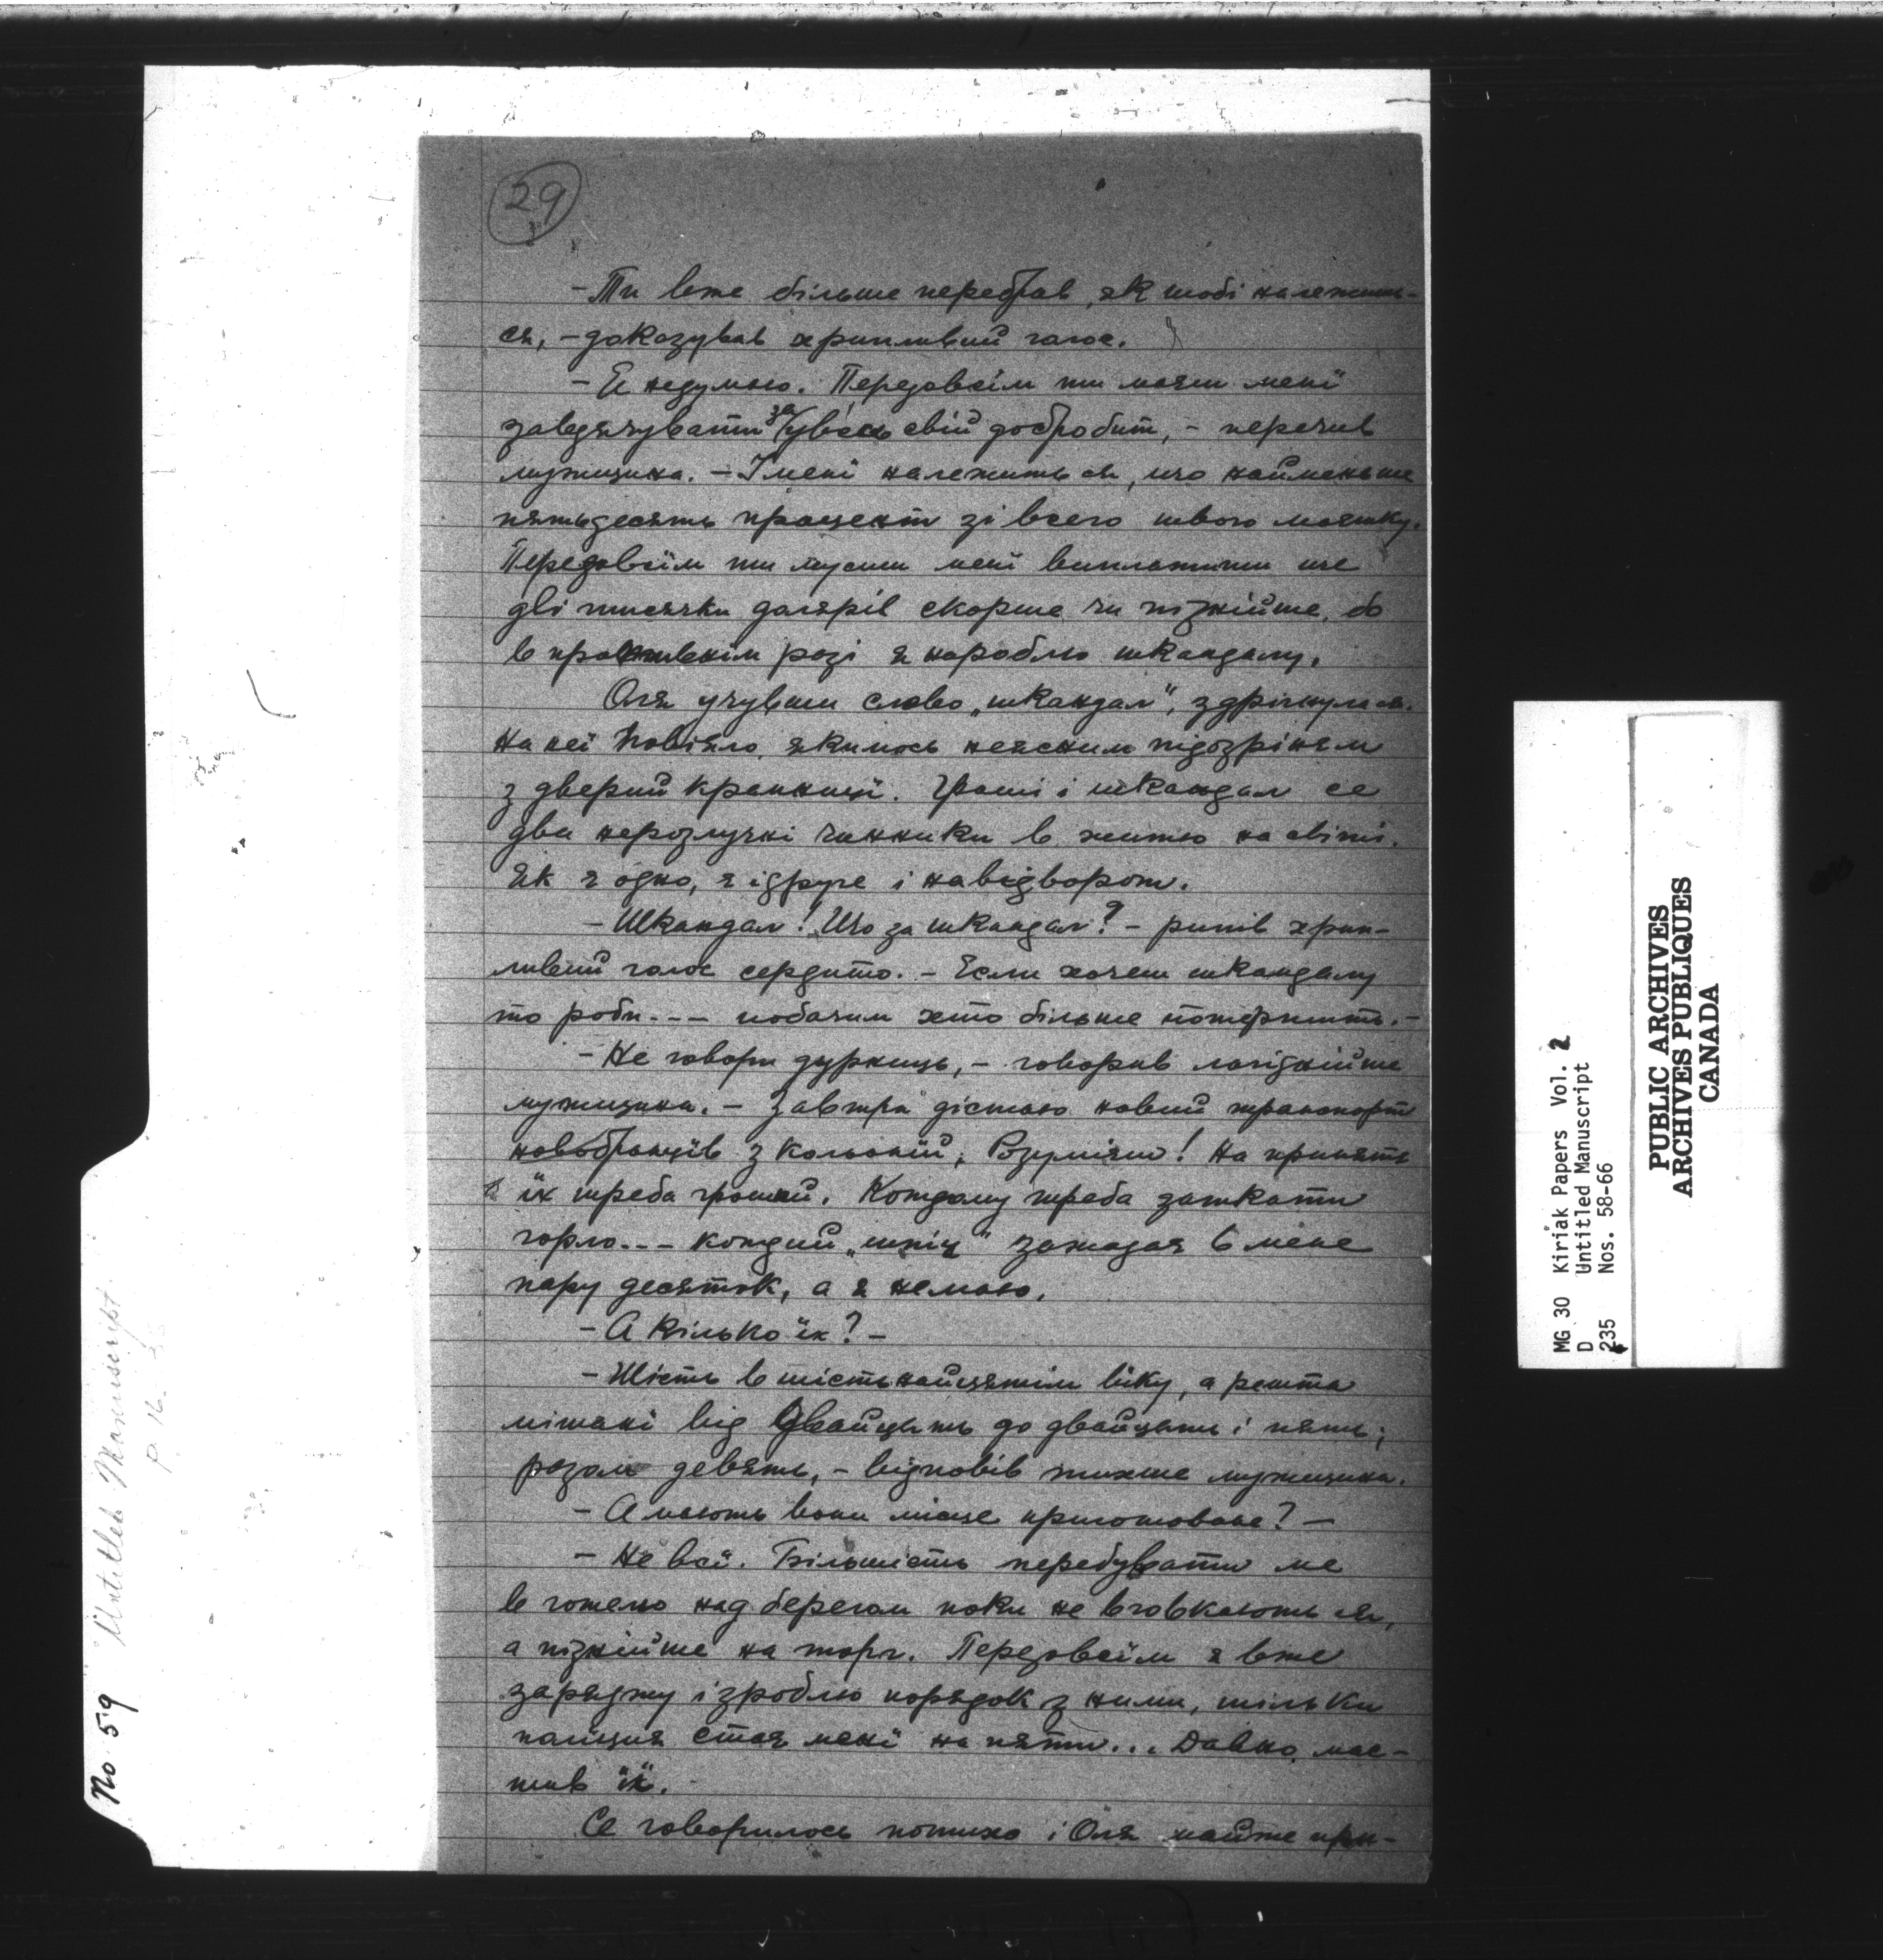 29
- Ти вже більше перебрав, як тобі належить-
ся, - доказував хрипливий голос.
- Я недумаю. Передовсім ти маєш мені
завдячувати за увесь свій добробит, - перечив
мужщина. - І мені належить ся, що найменьше
пятьдесять процент зі всего твого маєтку.
Передовсїм ти мусиш мені виплатити ще
дві тисячки долярів скорше чи пізнійше, бо
в противнім разі я нароблю шкандалу.
Оля учувши слово „шкандал", здрігнулася.
На неї повіяло якимось неясним підозрінєм
з дверий кранниці. Гроші і шкандал се
два неразлучні чинники в житю на світі.
Як є одно, є і друге і навідворот.
- Шкандал! Що за шкандал? - рипів хрип-
ливий голос сердито. - Если хочеш шкандалу
то роби--- побачим хто більше потерпить. -
- Не говори дурниць, - говорив лагіднійше
мужщина. - Завтра дістаю новий транспорт
новобранців з кольоній, Розумієш! На принять
їх треба грошей. Кождому треба заткати
горло--- кождий „шпіц" зажадає в мене
пару десяток, а я немаю.
- А кілько їх? -
- Шість в шістьнайцятім віку, а решта
мішані від двайцять до двайцять і пять;
разом девять, - відповів тихше мужщина.
- А мають вони місце приготоване? -
- Не всї. Більшість перебувати ме
в готелю над берегом поки не вговкають ся,
а пізнійше на торг. Передовсїм я вже
заряджу і зроблю порядок з ними, тільки
поліция стає мені на пяти... Давно мас-
тив їх.
Се говорилось потихо і Оля майже при-
No 59 Untitled Manuscript
P. 16-
MG 30 Kiriak Papers Vol. 2
D Untitled Manuscript
235 Nos. 58-66
PUBLIC ARCHIVES
ARCHIVES PUBLIQUES
CANADA